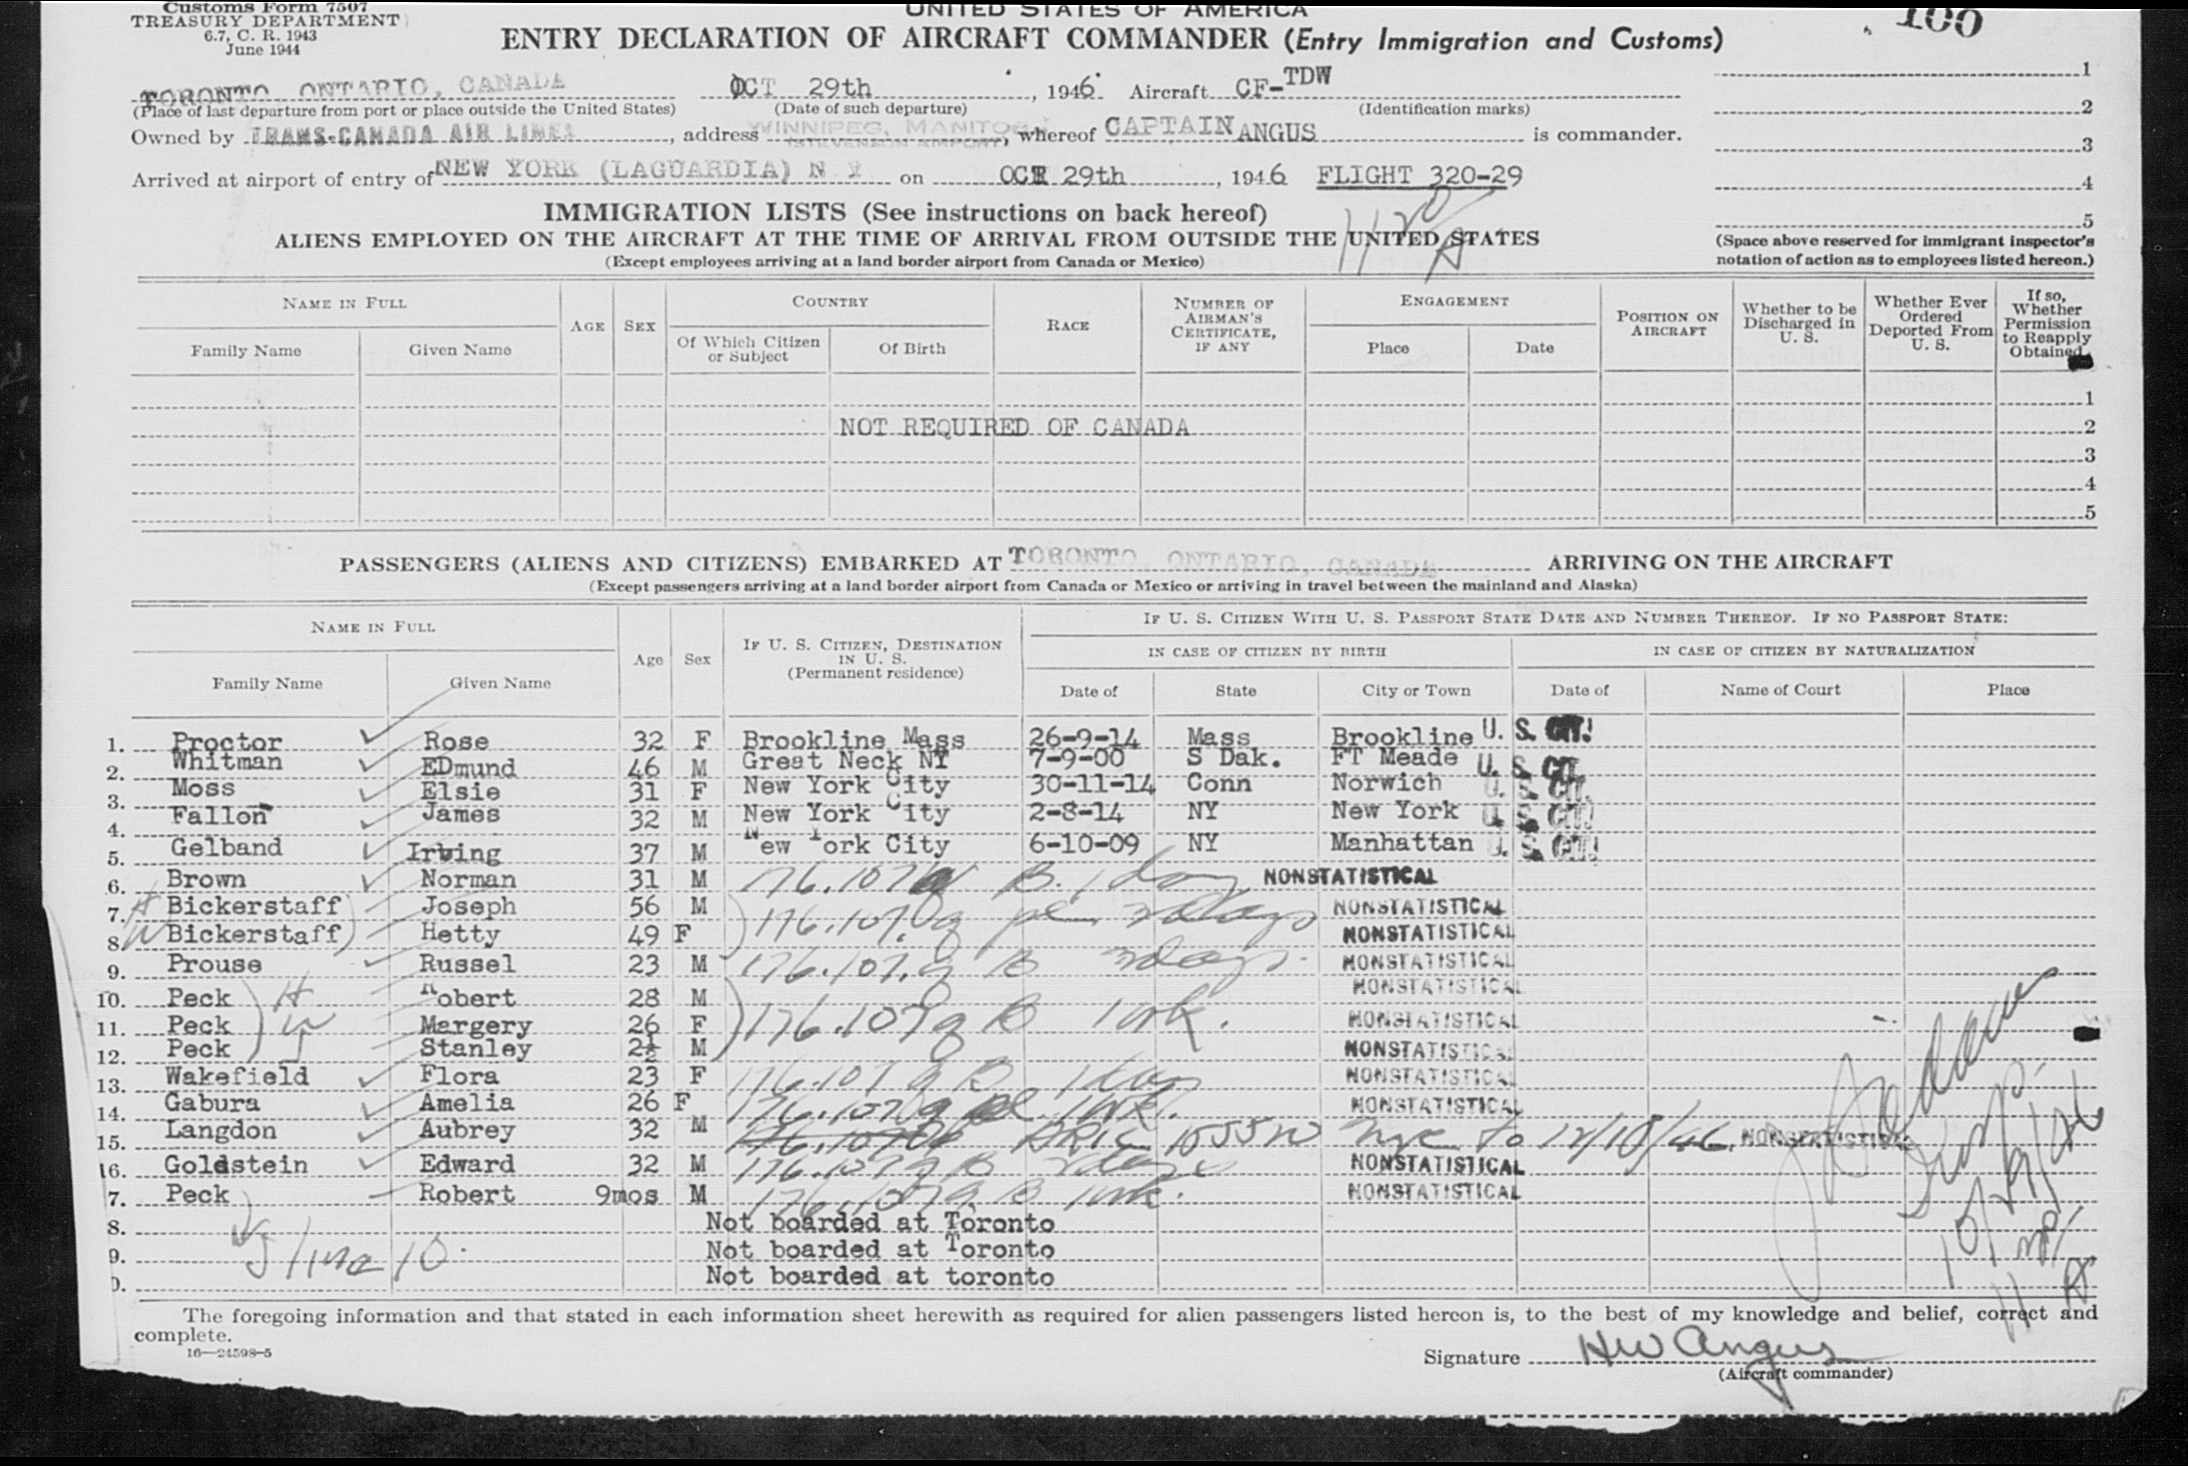 Customs Form 7507
TREASURY DEPARTMENT
6.7, C. R. 1943
June 1944
UNITED STATES OF AMERICA
ENTRY DECLARATION OF AIRCRAFT COMMANDER (Entry Immigration and Customs)
100
TORONTO ONTARIO, CANADA OCT 29th, 1946. Aircraft CF-TDW
(Place of last departure from port or place outside the United States) (Date of such departure) (Identification marks)
Owned by TRANS-CANADA AIR LINES, address WINNIPEG, MANITOBA (STEVENSON AIRPORT), whereof CAPTAIN ANGUS is commander.
Arrived at airport of entry of NEW YORK (LAGUARDIA) N Y on OCT 29th, 1946 FLIGHT 320-29
1
2
3
4
5
(Space above reserved for immigrant inspector's
notation of action as to employees listed hereon.)
IMMIGRATION LISTS (See instructions on back hereof)
1120
A
ALIENS EMPLOYED ON THE AIRCRAFT AT THE TIME OF ARRIVAL FROM OUTSIDE THE UNITED STATES
(Except employees arriving at a land border airport from Canada or Mexico)
NAME IN FULL AGE SEX COUNTRY RACE NUMBER OF AIRMAN'S CERTIFICATE, IF ANY ENGAGEMENT POSITION ON AIRCRAFT Whether to be Discharged in U. S. Whether Ever Ordered Deported From U. S. If so, Whether Permission to Reapply Obtained
Family Name Given Name Of Which Citizen or Subject Of Birth Place Date
1
NOT REQUIRED OF CANADA 2
3
4
5
PASSENGERS (ALIENS AND CITIZENS) EMBARKED AT TORONTO, ONTARIO, CANADA ARRIVING ON THE AIRCRAFT
(Except passengers arriving at a land border airport from Canada or Mexico or arriving in travel between the mainland and Alaska)
NAME IN FULL Age Sex IF U. S. CITIZEN, DESTINATION IN U. S. (Permanent residence) IF U. S. CITIZEN WITH U. S. PASSPORT STATE DATE AND NUMBER THEREOF. IF NO PASSPORT STATE:
IN CASE OF CITIZEN BY BIRTH IN CASE OF CITIZEN BY NATURALIZATION
Family Name Given Name Date of State City or Town Date of Name of Court Place
1. Proctor Rose 32 F Brookline Mass 26-9-14 Mass Brookline U. S. CIT!
2. Whitman EDmund 46 M Great Neck NY 7-9-00 S Dak. FT Meade U. S. CIT.
3. Moss Elsie 31 F New York City 30-11-14 Conn Norwich U. S. CIT.
4. Fallon James 32 M New York City 2-8-14 NY New York U. S. CIT!
5. Gelband Irving 37 M New York City 6-10-09 NY Manhattan U. S. CIT!
6. Brown Norman 31 M 176.107 B. 1 day NONSTATISTICAL
7. H Bickerstaff Joseph 56 M 176.107.g 3 days NONSTATISTICAL
8. W Bickerstaff Hetty 49 F NONSTATISTICAL
9. Prouse Russel 23 M 176.107.g B 3 days. NONSTATISTICAL
10. Peck H Robert 28 M NONSTATISTICAL
11. Peck W Margery 26 F 176.107 g B 1 wk. NONSTATISTICAL
12. Peck Stanley 2½ M NONSTATISTICAL
13. Wakefield Flora 23 F 176.107 g B 1 day NONSTATISTICAL
14. Gabura Amelia 26 F 176.107 g 1 wk. NONSTATISTICAL
15. Langdon Aubrey 32 M 1055 NYC to 12/10/46 NONSTATISTICAL
16. Goldstein Edward 32 M 176.107 g B days NONSTATISTICAL
7. Peck Robert 9mos M 176.107 g B 1 wk. NONSTATISTICAL
8. Not boarded at Toronto
9. line 10. Not boarded at Toronto
0. Not boarded at toronto
The foregoing information and that stated in each information sheet herewith as required for alien passengers listed hereon is, to the best of my knowledge and belief, correct and
complete.
16—24598-5
Signature HW Angus
(Aircraft commander)